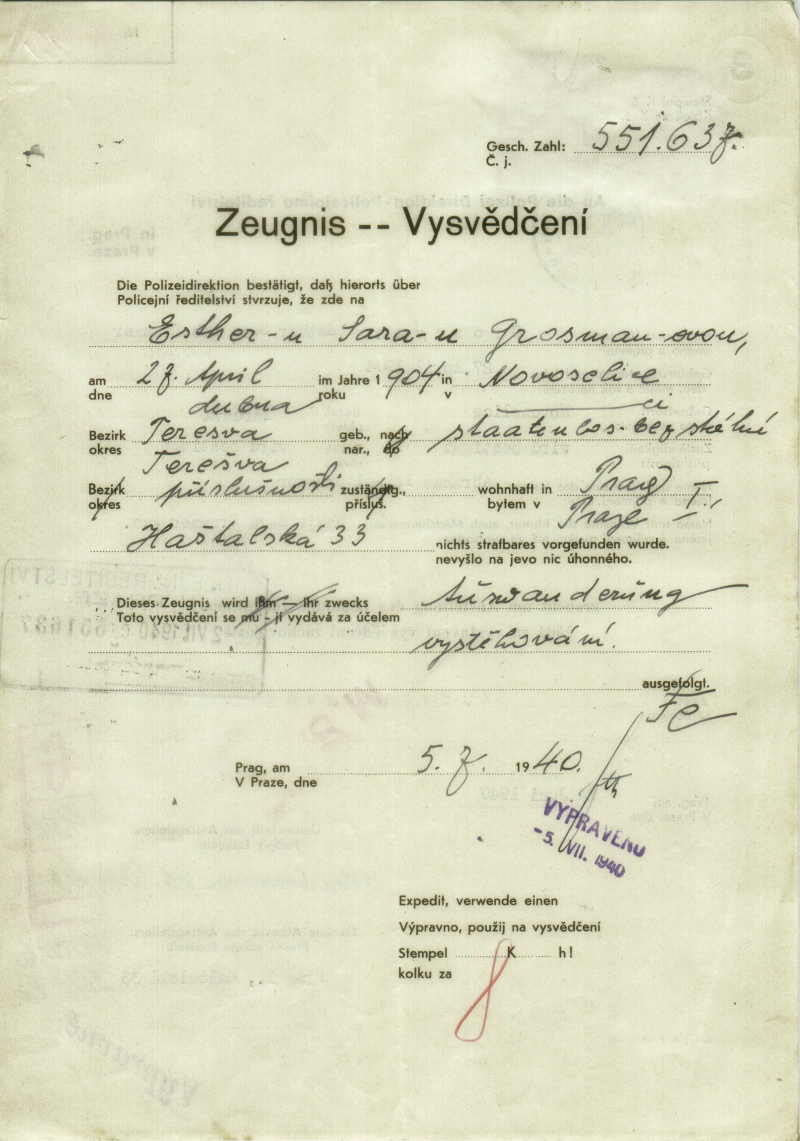 Gesch. Zahl: 551.637.
Č. j.
Zeugnis -- Vysvědčení
Die Polizeidirektion bestätigt, daß hierorts über
Policejní ředitelství stvrzuje, že zde na
Esther-u Sara-u Grosman-ovou,
am 27. April im Jahre 1904 in Novoselice
dne dubna roku v ci
Bezirk Teresva geb., nach staatenlos-bezstátní
okres Terešva nar., do
Bezirk příslušnosti zuständig., wohnhaft in Prag I.,
okres přísluš. bytem v Praze
Haštalská 33 nichts strafbares vorgefunden wurde.
nevyšlo na jevo nic úhonného.
Dieses Zeugnis wird ihm — ihr zwecks Auswanderung
Toto vysvědčení se mu - jí vydává za účelem
vystěhování.
ausgefolgt.
Prag, am 5. 7. 1940.
V Praze, dne
VYPRAVENO
-5. VII. 1940
Expedit, verwende einen
Výpravno, použij na vysvědčení
Stempel K h!
kolku za